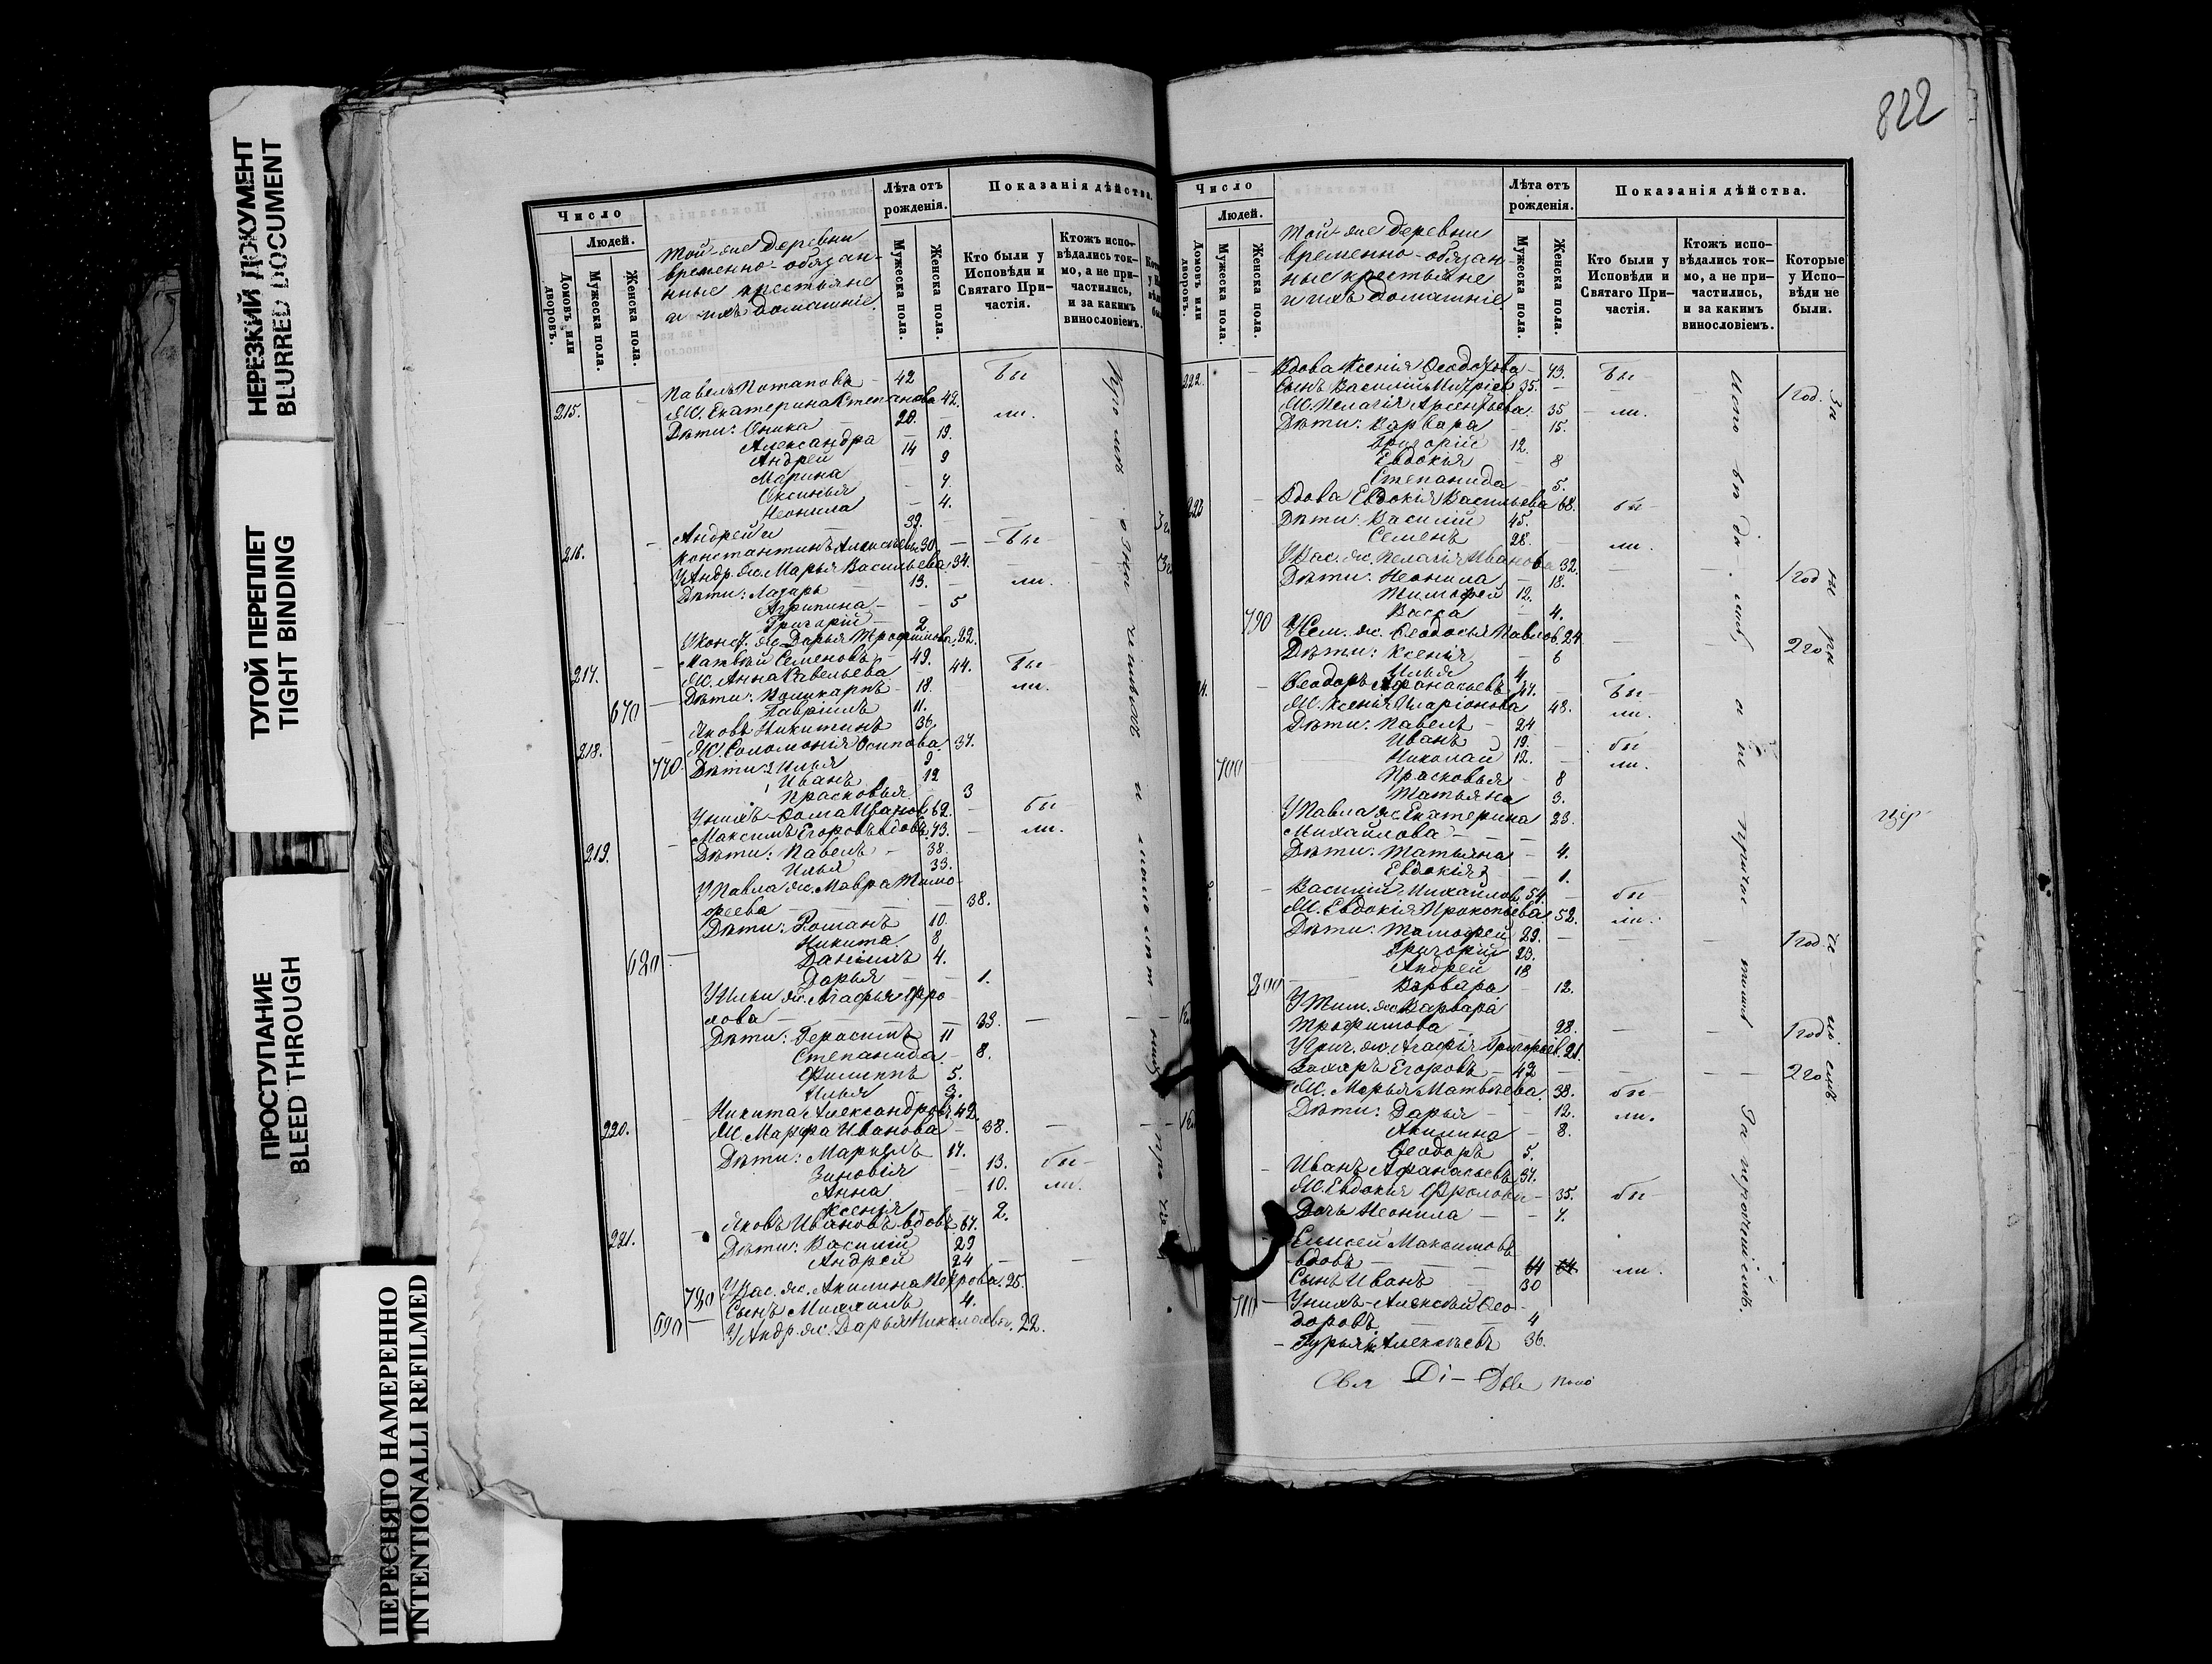 НЕРЕЗКИЙ ДОКУМЕНТ
BLURRED DOCUMENT
ТУГОЙ ПЕРЕПЛЕТ
TIGHT BINDING
ПРОСТУПАНИЕ
BLEED THROUGH
ПЕРЕСНЯТО НАМЕРЕННО
INTENTIONALLI REFILMED
Число
Людей.
Домовъ или дворовъ.
Мужеска пола.
Женска пола.
Той-же деревни
временно-обязан-
ные крестьяне
и ихъ домашніе.
Лѣта отъ рожденія.
Мужеска пола.
Женска пола.
Показанія дѣйства.
Кто были у Исповѣди и Святаго Причастія.
Ктожъ исповѣдались токмо, а не причастились, и за какимъ винословіемъ.
215. Павелъ Потаповъ - 42 бы
Ж. Екатерина Степанова 42.
Дѣти: Оника - 20. ли.
Александра - 19.
Андрей 14
Марина - 9
Аксинья - 7.
Неонила - 4.
216. Андрей и 39.
Константинъ Алексѣевы 30 - бы
У Андр. ж. Марья Васильева 34.
Дѣти: Лазарь 13. ли.
Агрипина - 5
Григорій - 2
У Конст. ж. Дарья Трофимова 22.
217. Матвѣй Семеновъ - 49. бы
Ж. Анна Савельева 44.
670 Дѣти: Поликарпъ - 18. ли.
Гавріилъ 11.
218. Яковъ Никитинъ 38.
Ж. Соломонія Осипова 37.
770. Дѣти: Илья 9
Иванъ 12
Прасковья - 3
У нихъ - Фома Ивановъ 62. - бы
219. Максимъ Егоровъ вдовъ 73. - ли.
Дѣти: Павелъ - 38.
Илья 33.
У Павла ж. Мавра Тимо-
феева - 38.
Дѣти: Романъ 10.
Никита 8
680 Даніилъ 4.
Дарья - 1.
У Ильи ж. Агафья Фро-
лова - 33.
Дѣти: Герасимъ 11
Степанида - 8.
Филиппъ 5.
Илья 3.
220. Никита Александровъ 42.
Ж. Марфа Иванова - 38.
Дѣти: Маркелъ 17.
Зиновія - 13. бы
Анна - 10. ли.
Ксенія - 2.
221. Яковъ Ивановъ вдовъ 67.
Дѣти: Василій 29
Андрей 24
780 У Вас. ж. Акилина Петрова 25.
Сынъ Михаилъ 4.
690 У Андр. ж. Дарья Николаева. 22.
822
Число
Людей.
Домовъ или дворовъ.
Мужеска пола.
Женска пола.
Той-же деревни
временно-обязан-
ные крестьяне
и ихъ домашніе
Лѣта отъ рожденія.
Мужеска пола.
Женска пола.
Показанія дѣйства.
Кто были у Исповѣди и Святаго Причастія.
Ктожъ исповѣдались токмо, а не причастились, и за какимъ винословіемъ.
Которые у Исповѣди не были.
222. Вдова Ксенія Ѳеодорова - 73. бы
Сынъ Василій 35. - 1 год.
Ж. Пелагія Арсентьева. 35 - ли.
Дѣти: Варвара - 15.
Григорій 12.
Евдокія - 8
Степанида - 5.
223 Вдова Евдокія Васильева 68. бы
Дѣти: Василій 45.
Семенъ 28. ли.
У Вас. ж. Пелагія Иванова 32.
Дѣти: Неонила - 18. 1 год
Тимофей 12.
Васса - 4.
790 У Сем. ж. Ѳеодосья Павлов. 24 2 го
Дѣти: Ксенія - 6
Илья 4
Ѳеодоръ Афанасьевъ 47. бы
Ж. Ксенія Иларіонова 48. ли.
Дѣти: Павелъ - 24
Иванъ 19. бы
700 Николай 12. ли.
Прасковья - 8
Татьяна - 3.
У Павла ж. Екатерина 23.
Михайлова -
Дѣти: Татьяна - 4.
Евдокія - 1.
Василій Михайлов. 54. бы
Ж. Евдокія Прокопьева 52. ли.
Дѣти: Тимофей 29. 1 год
Григорій 23.
Андрей 18
800 Варвара - 12.
У Тим. ж. Варвара
Трофимова 28. 1 год
У Григ. ж. Агафія Григорьев. 21.
Захаръ Егоровъ - 42 2 го
Ж. Марья Матвѣева 38. бы
Дѣти: Дарья - 12. ли.
Акилина - 8.
Ѳеодоръ 5.
Иванъ Афанасьевъ 37.
Ж. Евдокія Фролова - 35. бы
Дочь Неонила - 7.
Елисей Максимовъ
вдовъ 64 64 ли.
Сынъ Иванъ - 30
710 У нихъ - Алексѣй Ѳео-
доровъ 4
Алексѣевъ 36.